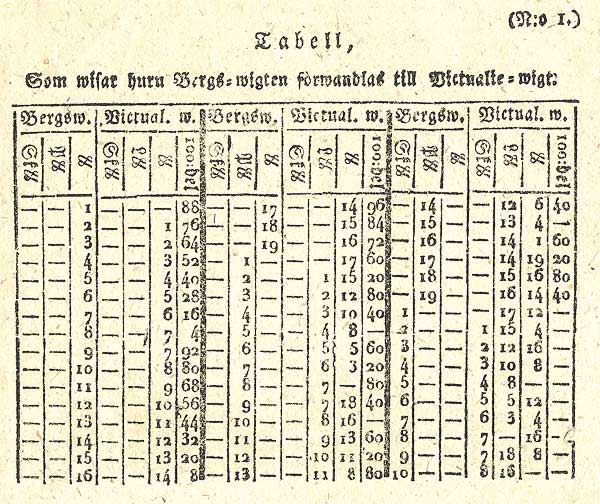 (N:o 1.)
Tabell,
Som wisar huru Bergs=wigten förwandlas till Victualie=wigt:
Bergsw. Victual. w. Bergsw. Victual. w. Bergsw. Victual. w.
Sk℔ M℔ ℔ Sk℔ L℔ ℔ 100:del Sk℔ M℔ ℔ Sk℔ L℔ ℔ 100:del Sk℔ M℔ ℔ Sk℔ L℔ ℔ 100:del
— — 1 — — — 88 — — 17 — — 14 96 — 14 — — 12 6 40
— — 2 — — 1 76 — — 18 — — 15 84 — 15 — — 13 4 —
— — 3 — — 2 64 — — 19 — — 16 72 — 16 — — 14 1 60
— — 4 — — 3 52 — 1 — — — 17 60 — 17 — — 14 19 20
— — 5 — — 4 40 — 2 — — 1 15 20 — 18 — — 15 16 80
— — 6 — — 5 28 — 3 — — 2 12 80 — 19 — — 16 14 40
— — 7 — — 6 16 — 4 — — 3 10 40 1 — — — 17 12 —
— — 8 — — 7 4 — 5 — — 4 8 — 2 — — 1 15 4 —
— — 9 — — 7 92 — 6 — — 5 5 60 3 — — 2 12 16 —
— — 10 — — 8 80 — 7 — — 6 3 20 4 — — 3 10 8 —
— — 11 — — 9 68 — 8 — — 7 — 80 5 — — 4 8 — —
— — 12 — — 10 56 — 9 — — 7 18 40 6 — — 5 5 12 —
— — 13 — — 11 44 — 10 — — 8 16 — 7 — — 6 3 4 —
— — 14 — — 12 32 — 11 — — 9 13 60 8 — — 7 — 16 —
— — 15 — — 13 20 — 12 — — 10 11 20 9 — — 7 18 8 —
— — 16 — — 14 8 — 13 — — 11 8 80 10 — — 8 16 — —